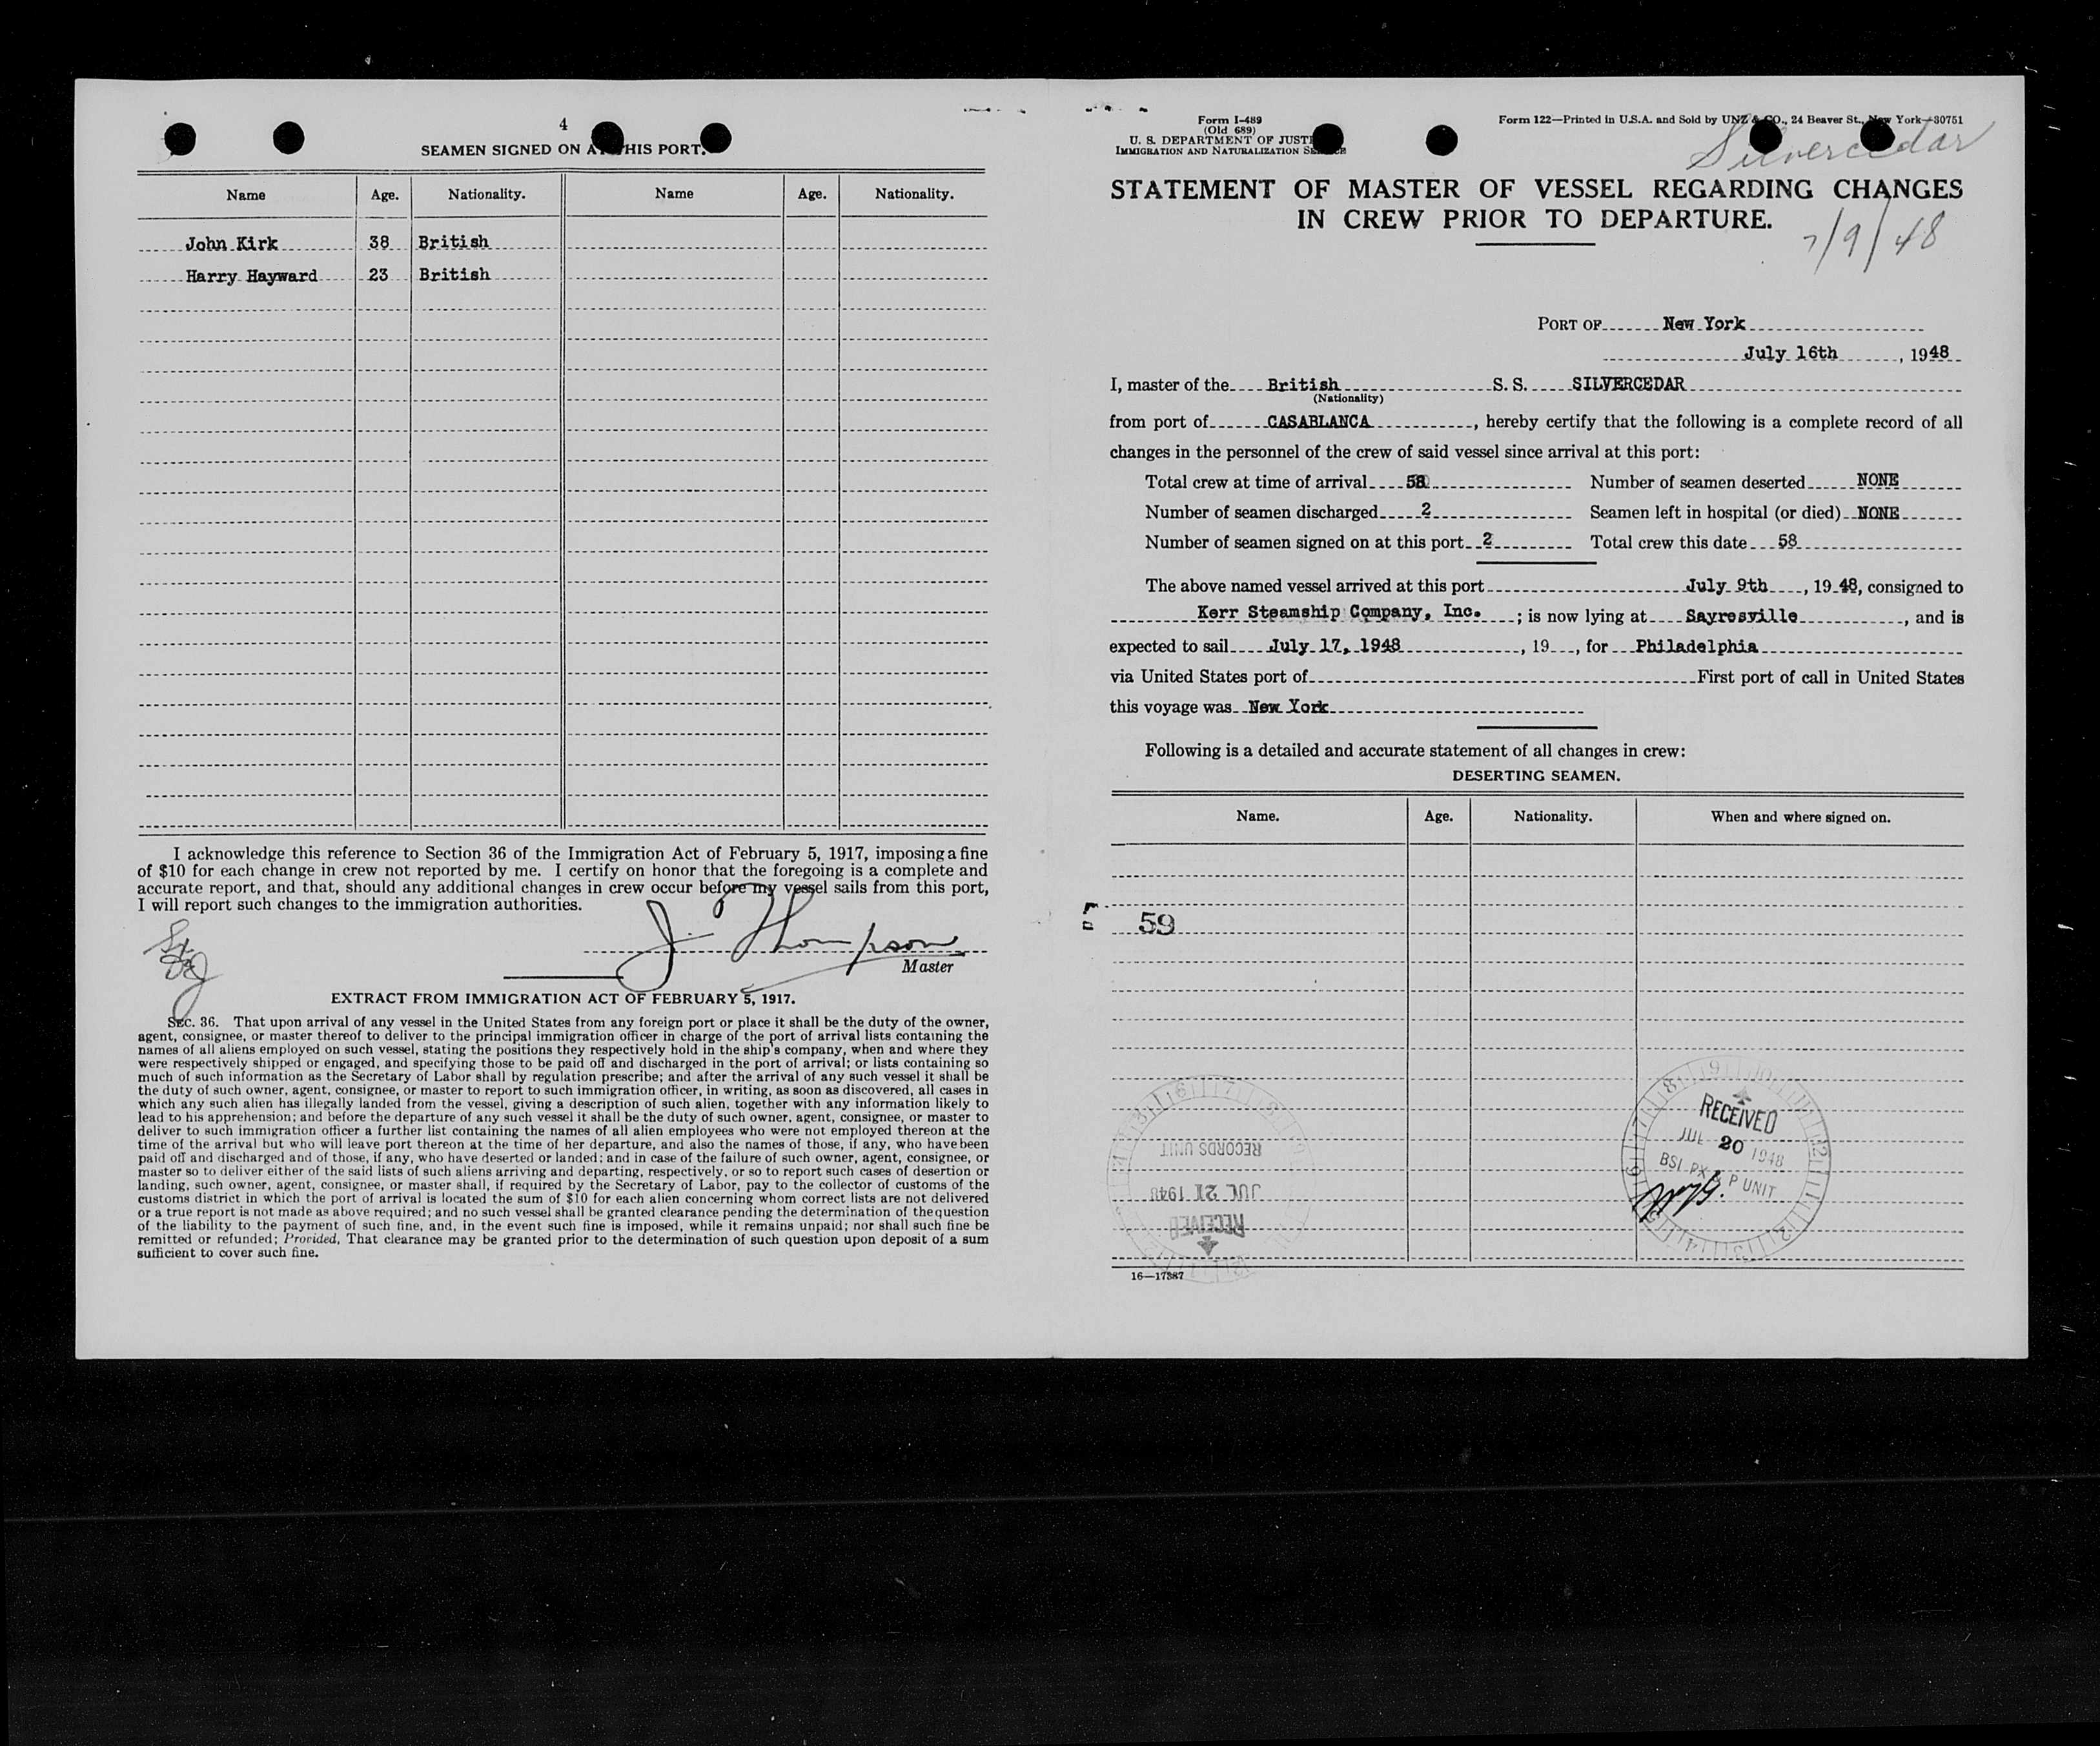 4
SEAMEN SIGNED ON AT THIS PORT.
Name Age. Nationality. Name Age. Nationality.
John Kirk 38 British
Harry Hayward 23 British
I acknowledge this reference to Section 36 of the Immigration Act of February 5, 1917, imposing a fine
of $10 for each change in crew not reported by me. I certify on honor that the foregoing is a complete and
accurate report, and that, should any additional changes in crew occur before my vessel sails from this port,
I will report such changes to the immigration authorities.
J. Thompson
Master
EXTRACT FROM IMMIGRATION ACT OF FEBRUARY 5, 1917.
SEC. 36. That upon arrival of any vessel in the United States from any foreign port or place it shall be the duty of the owner,
agent, consignee, or master thereof to deliver to the principal immigration officer in charge of the port of arrival lists containing the
names of all aliens employed on such vessel, stating the positions they respectively hold in the ship's company, when and where they
were respectively shipped or engaged, and specifying those to be paid off and discharged in the port of arrival; or lists containing so
much of such information as the Secretary of Labor shall by regulation prescribe; and after the arrival of any such vessel it shall be
the duty of such owner, agent, consignee, or master to report to such immigration officer, in writing, as soon as discovered, all cases in
which any such alien has illegally landed from the vessel, giving a description of such alien, together with any information likely to
lead to his apprehension; and before the departure of any such vessel it shall be the duty of such owner, agent, consignee, or master to
deliver to such immigration officer a further list containing the names of all alien employees who were not employed thereon at the
time of the arrival but who will leave port thereon at the time of her departure, and also the names of those, if any, who have been
paid off and discharged and of those, if any, who have deserted or landed; and in case of the failure of such owner, agent, consignee, or
master so to deliver either of the said lists of such aliens arriving and departing, respectively, or so to report such cases of desertion or
landing, such owner, agent, consignee, or master shall, if required by the Secretary of Labor, pay to the collector of customs of the
customs district in which the port of arrival is located the sum of $10 for each alien concerning whom correct lists are not delivered
or a true report is not made as above required; and no such vessel shall be granted clearance pending the determination of the question
of the liability to the payment of such fine, and, in the event such fine is imposed, while it remains unpaid; nor shall such fine be
remitted or refunded; Provided, That clearance may be granted prior to the determination of such question upon deposit of a sum
sufficient to cover such fine.
Form I-489
(Old 689)
U. S. DEPARTMENT OF JUSTICE
IMMIGRATION AND NATURALIZATION SERVICE
Form 122—Printed in U.S.A. and Sold by UNZ & CO., 24 Beaver St., New York—30751
Silvercedar
STATEMENT OF MASTER OF VESSEL REGARDING CHANGES
IN CREW PRIOR TO DEPARTURE.
7/9/48
PORT OF New York
July 16th, 1948
I, master of the British S. S. SILVERCEDAR
(Nationality)
from port of CASABLANCA, hereby certify that the following is a complete record of all
changes in the personnel of the crew of said vessel since arrival at this port:
Total crew at time of arrival 58 Number of seamen deserted NONE
Number of seamen discharged 2 Seamen left in hospital (or died) NONE
Number of seamen signed on at this port 2 Total crew this date 58
The above named vessel arrived at this port July 9th, 1948, consigned to
Kerr Steamship Company, Inc. ; is now lying at Sayresville, and is
expected to sail July 17, 1948, 19 , for Philadelphia
via United States port of First port of call in United States
this voyage was New York
Following is a detailed and accurate statement of all changes in crew:
DESERTING SEAMEN.
Name. Age. Nationality. When and where signed on.
59
RECEIVED
JUL 20 1948
BSI PX & P UNIT
RECORDS UNIT
JUL 21 1948
RECEIVED
16—17387